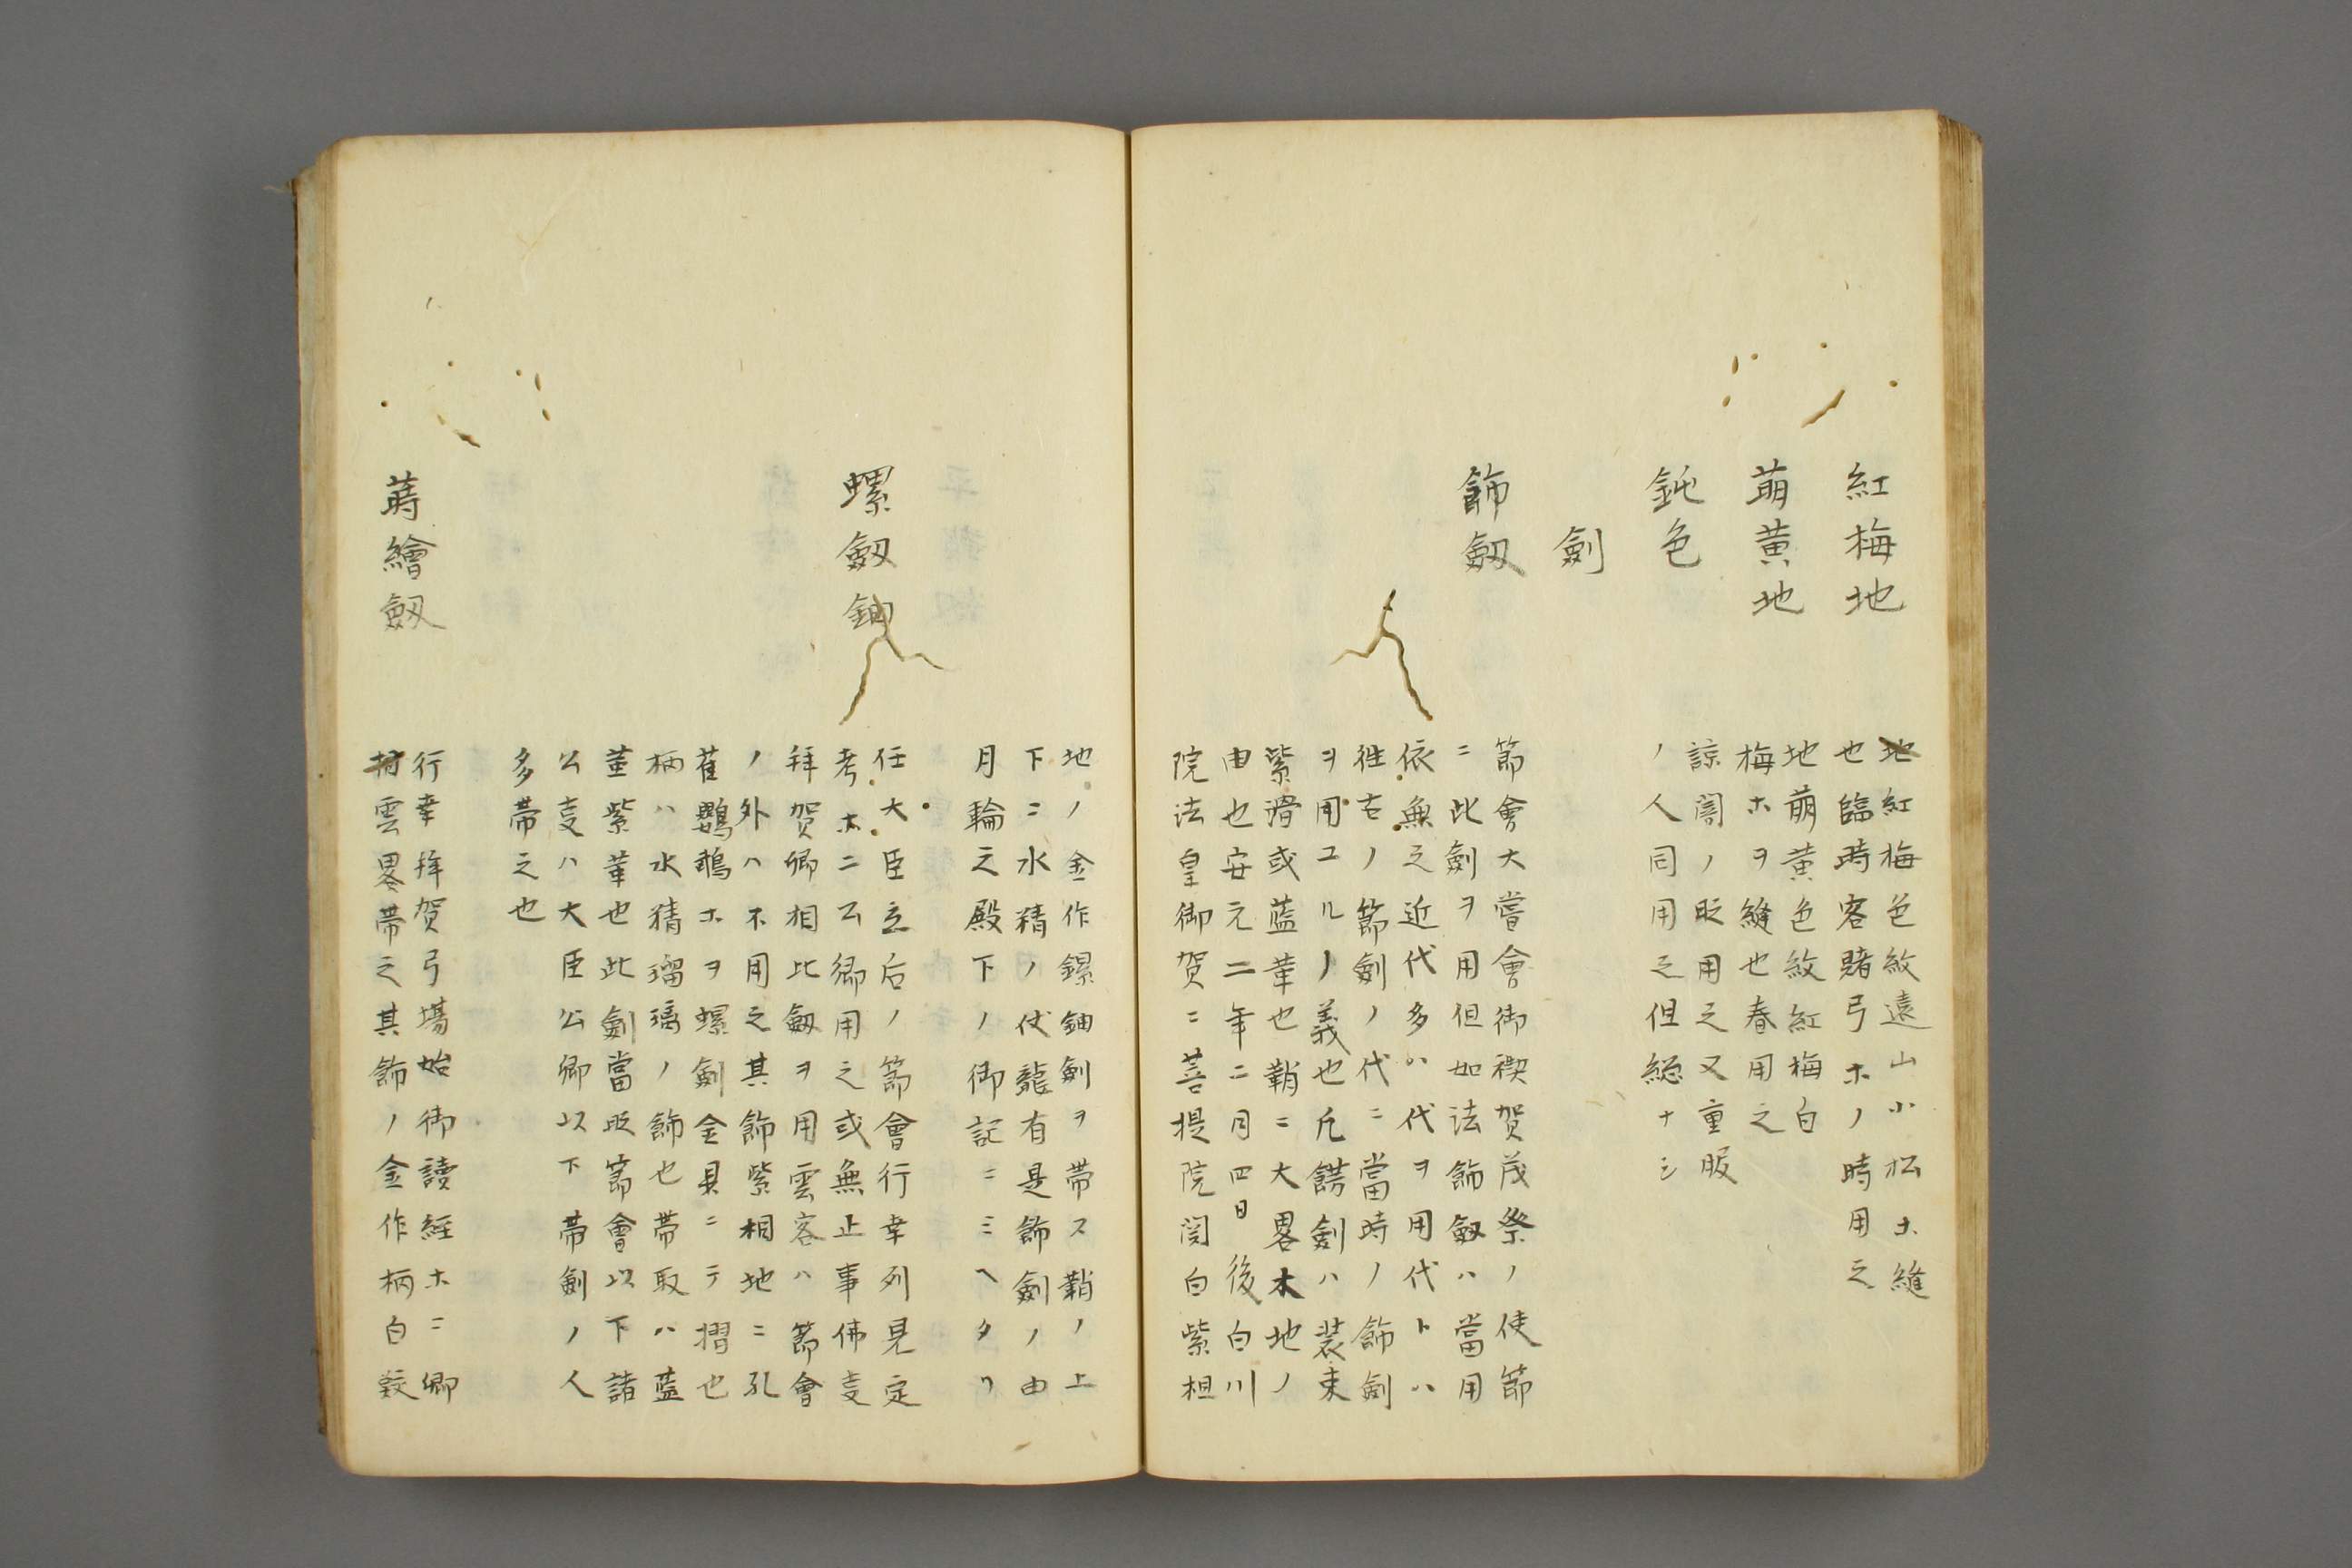 紅梅地
地紅梅色紋遠山小松ホ縫
也臨時客賭弓ホノ時用之
萌黄地
地萌黄色紋紅梅白
梅ホヲ縫也春用之
鈍色
諒闇ノ時用之又重服
ノ人同用之但緦ナシ
劍
飾劔
節會大嘗會御禊賀茂祭ノ使節
ニ此劍ヲ用但如法飾劔ハ當用
依無之近代多ハ代ヲ用代トハ
徃古ノ節劍ノ代ニ當時ノ飾劍
ヲ用ユルノ義也凡餝劍ハ裝束
紫滑或蓝革也鞘ニ大畧木地ノ
由也安元二年二月四日後白川
院法皇御賀ニ菩提院関白紫柤
地ノ金作鏍鈿劍ヲ帯ス鞘ノ上
下ニ水精ノ伏龍有是飾劍ノ由
月輪之殿下ノ御記ニミヘタリ
螺劔鈿
任大臣立后ノ節會行幸列見定
考ホニ公卿用之或無止事佛叓
拜賀卿相比劔ヲ用雲客ハ節會
ノ外ハ不用之其飾紫相地ニ孔
雀鸚鵡ホヲ螺劍金具ニテ摺也
柄ハ水精瑠璃ノ飾也帯取ハ蓝
堇紫革也此劍當時節會以下諸
公叓ハ大臣公卿以下帯劍ノ人
多帯之也
蒔繪劔
行幸拜賀弓場始御讀経ホニ卿
相雲畧帯之其飾ノ金作柄白鮫